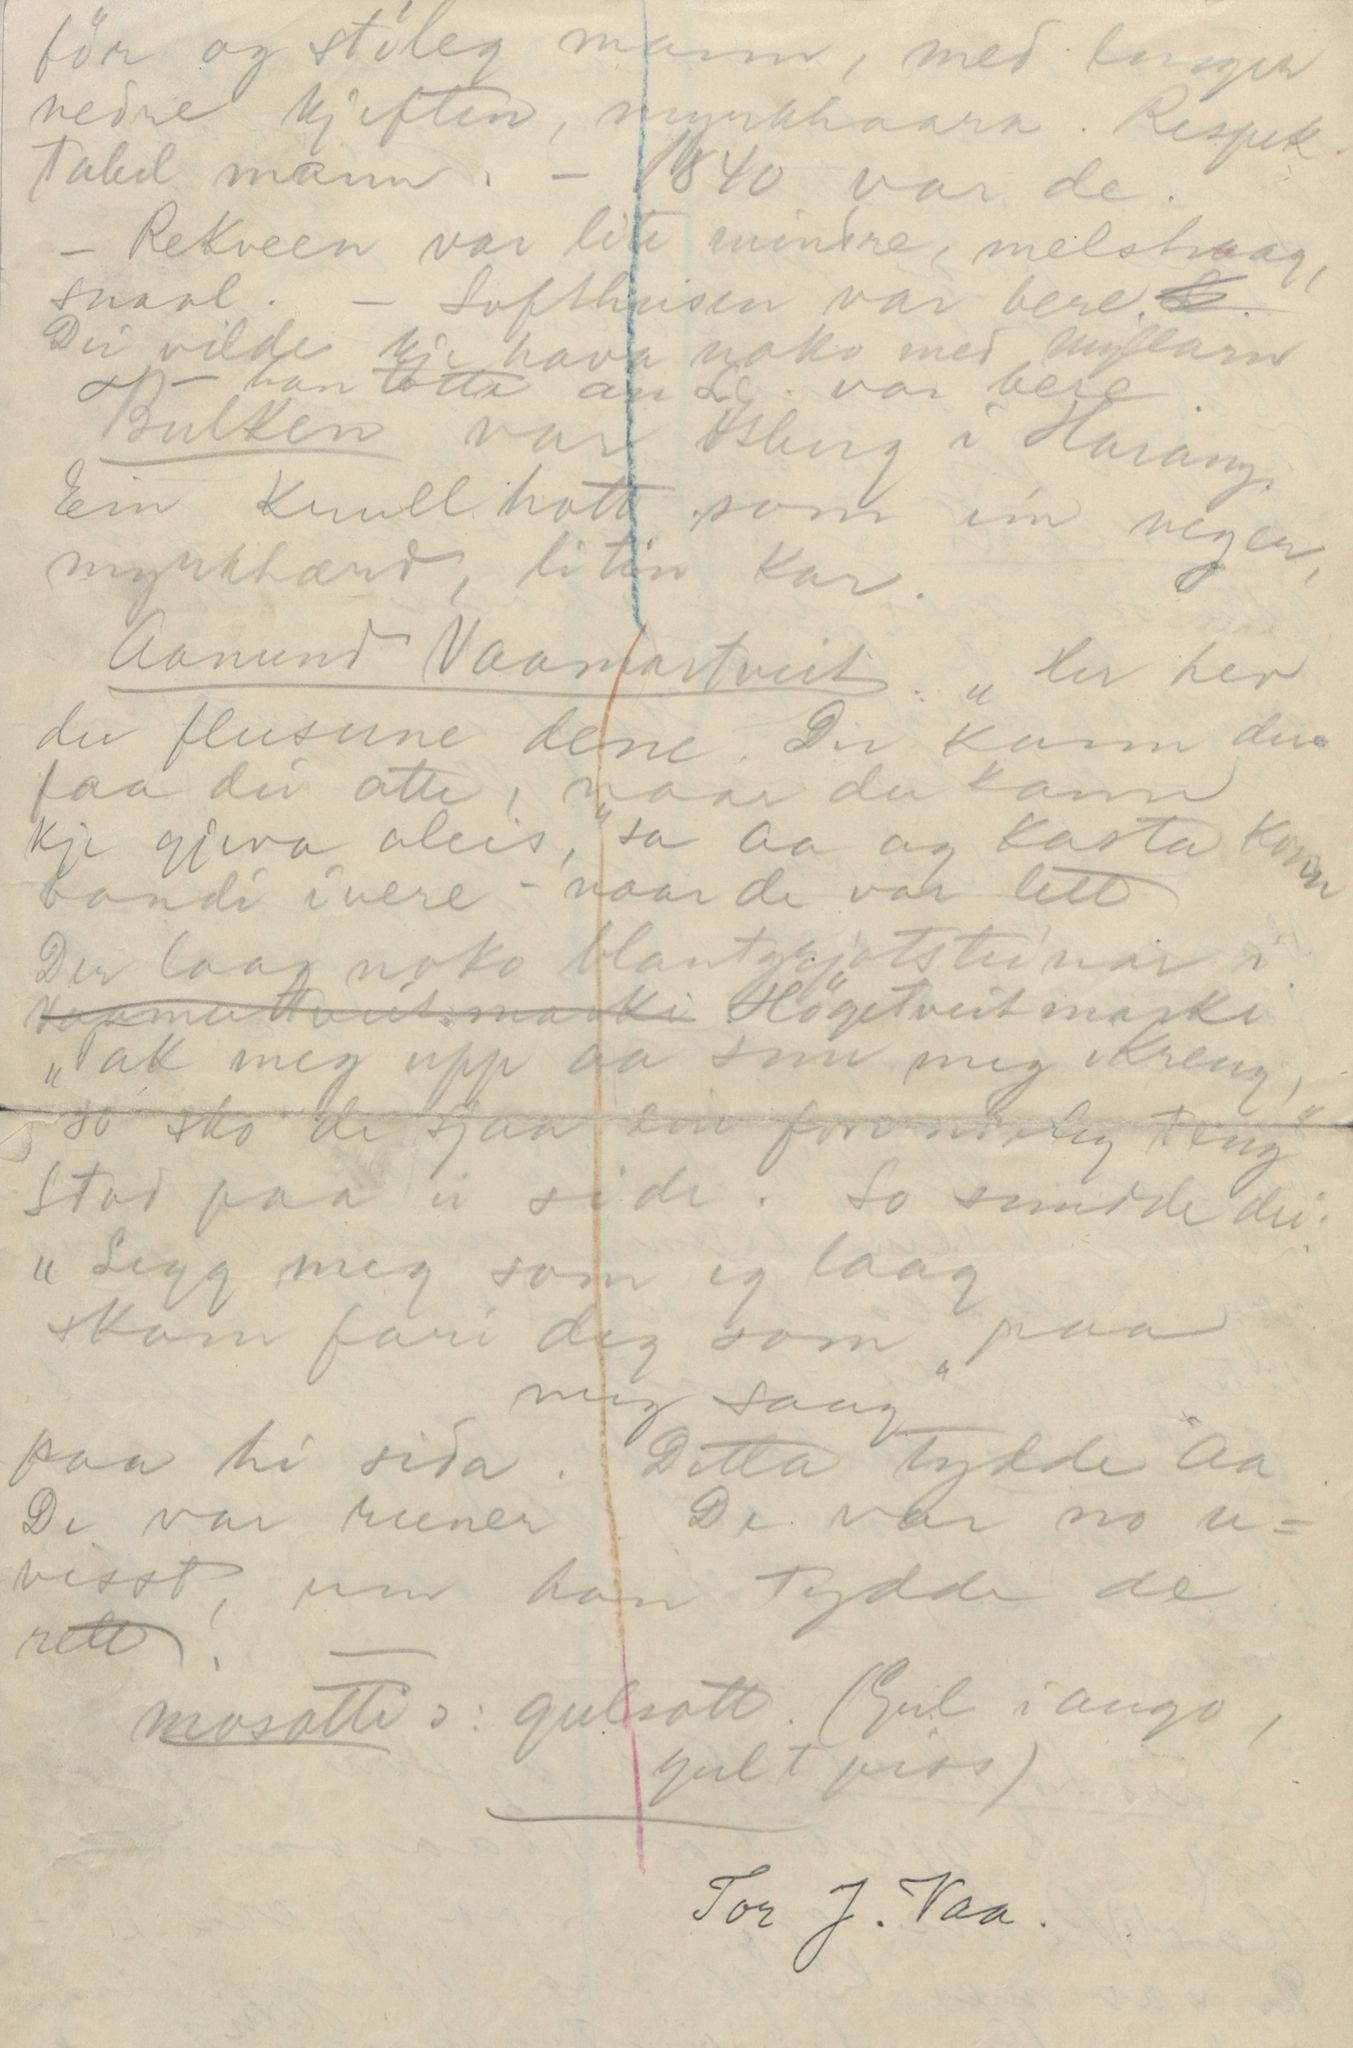 för og stöleg mann, med lange
nedre kjeften, myrkhaara. Respek-
tabel mann. – 1840 var de.
– Rekveen var lite mindre, melshaag,
snaal. – Lofthusen var bere.
Dei vilde kje hava noko med Myllarn
– han totte an L. var bere
Bulken var Isberg i Harang.
Ein krull hatt som ein neger,
myrkhærd, liten kar.
Aanund Vaamartveit. „Her hev
du flusune dene. Du kann du
faa dei atte, naar du kann
kje gjeva aleis," sa Aa og kasta korn
bandi ivere – naar de var lett
Der laag noko blautgrjotsteinar i
Vaamartveit marki Högetveit marki
„Tak meg upp aa snu meg ikreng,
so sko de sjaa ein forunderleg ting"
Stod paa ei side. So snudde dei:
„Legg meg som eg laag
skam fari deg som paa
meg saag"
paa hi sida. Detta tydde Aa
De var runer De var no u=
visst, um han tydde de
rett.
mosotti ɔ: gulsott. (Gul i augo,
gult piss)
Tor J. Vaa.